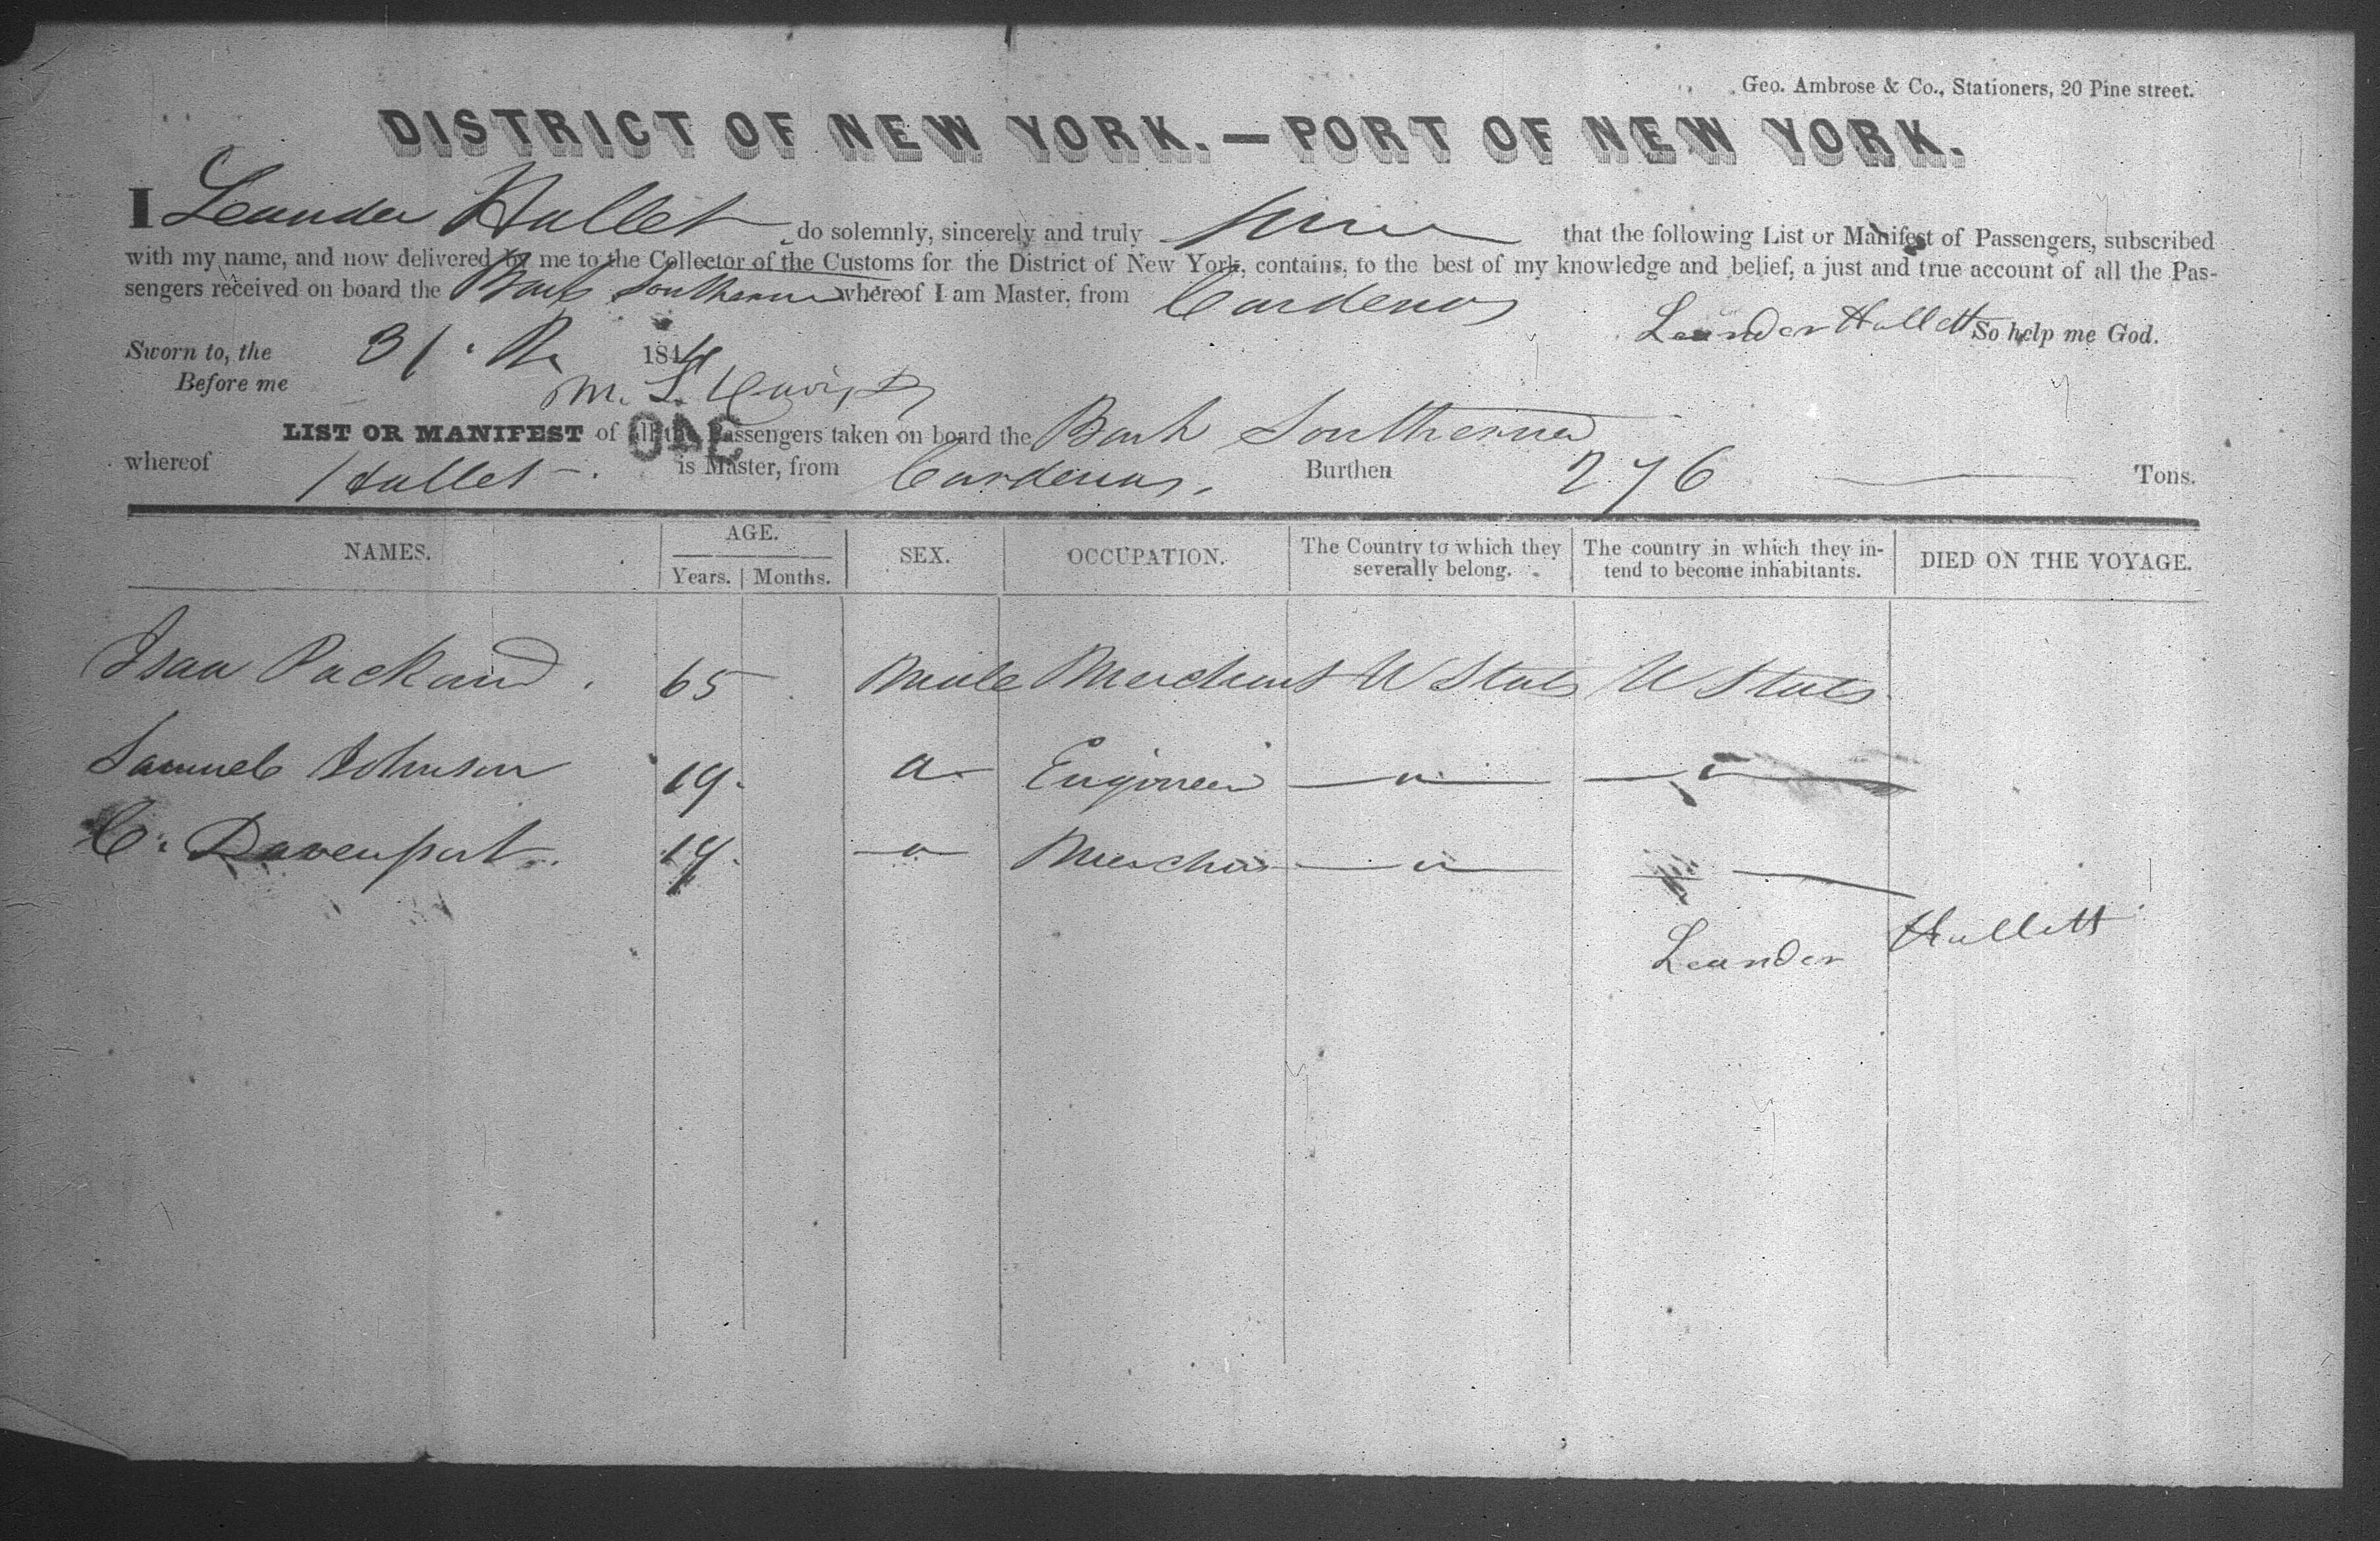 Geo. Ambrose & Co., Stationers, 20 Pine street.
DISTRICT OF NEW YORK.—PORT OF NEW YORK.
I Leander Hallet do solemnly, sincerely and truly that the following List or Manifest of Passengers, subscribed
with my name, and now delivered by me to the Collector of the Customs for the District of New York, contains, to the best of my knowledge and belief, a just and true account of all the Pas-
sengers received on board the Bark Southerner whereof I am Master, from Cardenas
Leander Hallett So help me God.
Sworn to, the 31 184
Before me M. L.
LIST OR MANIFEST of all the Passengers taken on board the Bark Southerner
whereof Hallet is Master, from Cardenas, Burthen 276 Tons.
NAMES. AGE. Years. Months. SEX. OCCUPATION. The Country to which they severally belong. The country in which they in-tend to become inhabitants. DIED ON THE VOYAGE.
Isaac Packard. 65 Male Merchant U States U States
Samuel Johnson 19. Engineer
C. Davenport. 19.
Leander Hallett